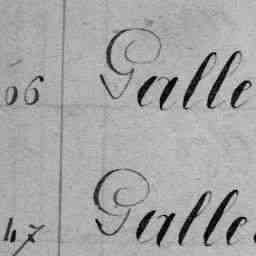 06 Galle
47 Galle